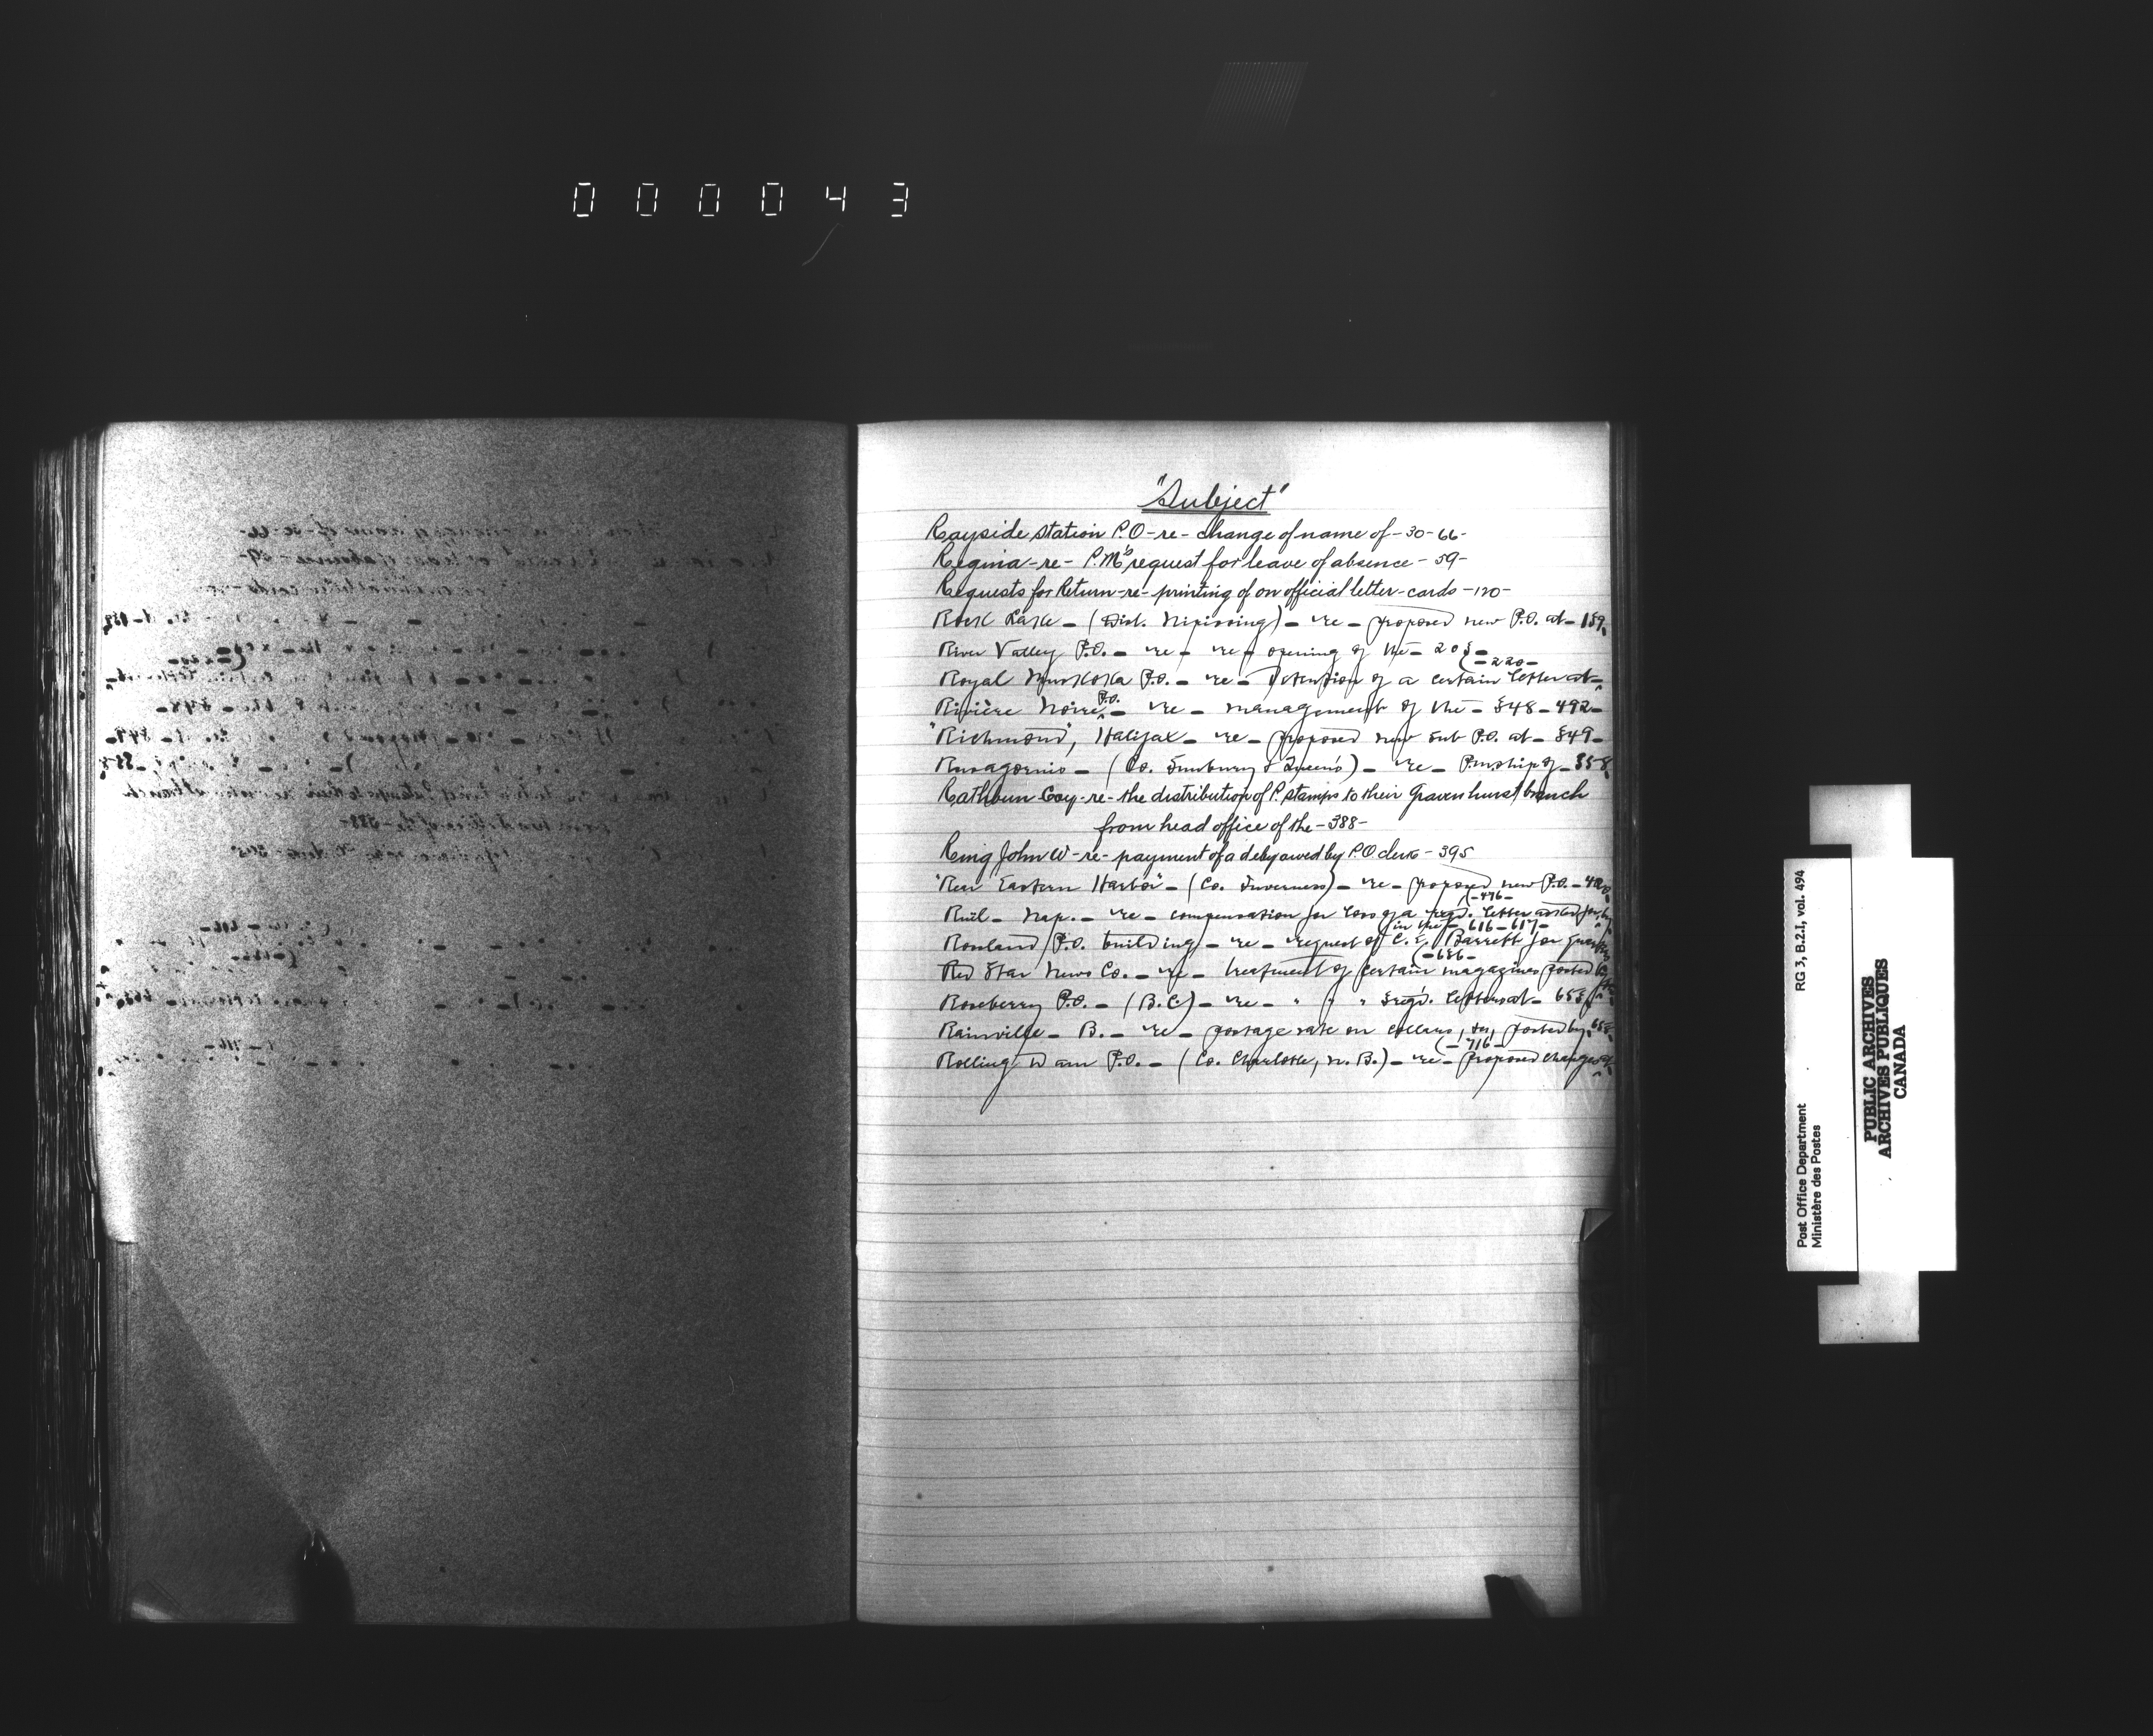 000043
"Subject"
Rayside station P.O - re - change of name of - 30 - 66 -
Regina - re - P.M's request for leave of absence - 59 -
Requests for Return - re - printing of on official letter-cards - 120 -
Rock Lake - (Dist. Nipissing) - re - proposed new P.O. at - 159
River Valley P.O. - re - re - opening of the - 203 -
- 220 -
Royal Muskoka P.O. - re - detention of a certain letter at -
Rivière Noire P.O. - re - management of the - 348 - 492 -
"Richmond", Halifax - re - proposed new sub P.O. at - 349 -
Rusagornis - (Co. Sunbury & Queen's) - re - P.mship of - 358
Rathbun Coy - re - the distribution of P. stamps to their Gravenhurst branch
from head office of the - 388 -
John W - re - payment of a debt owed by P.O. clerk - 395
"Rear Eastern Harbor" - (Co. Inverness) - re - proposed new P.O. -
- 476 -
Nap. - re - compensation for loss of a regd. letter asked for by
in the - 616 - 617 -
Rossland P.O. building - re - request of C. E. Barrett for
- 636 -
Red Star News Co. - re - treatment of certain magazines posted by
Roseberry P.O. - (B.C.) - re - " " " 3 regd. letters at - 653
Rainville - B. - re - postage rate on collars, &c, posted by
- 716 -
Rolling Dam P.O. - (Co. Charlotte, N. B.) - re - proposed change
RG 3, B.2.I, vol. 494
Post Office Department
Ministère des Postes
PUBLIC ARCHIVES
ARCHIVES PUBLIQUES
CANADA